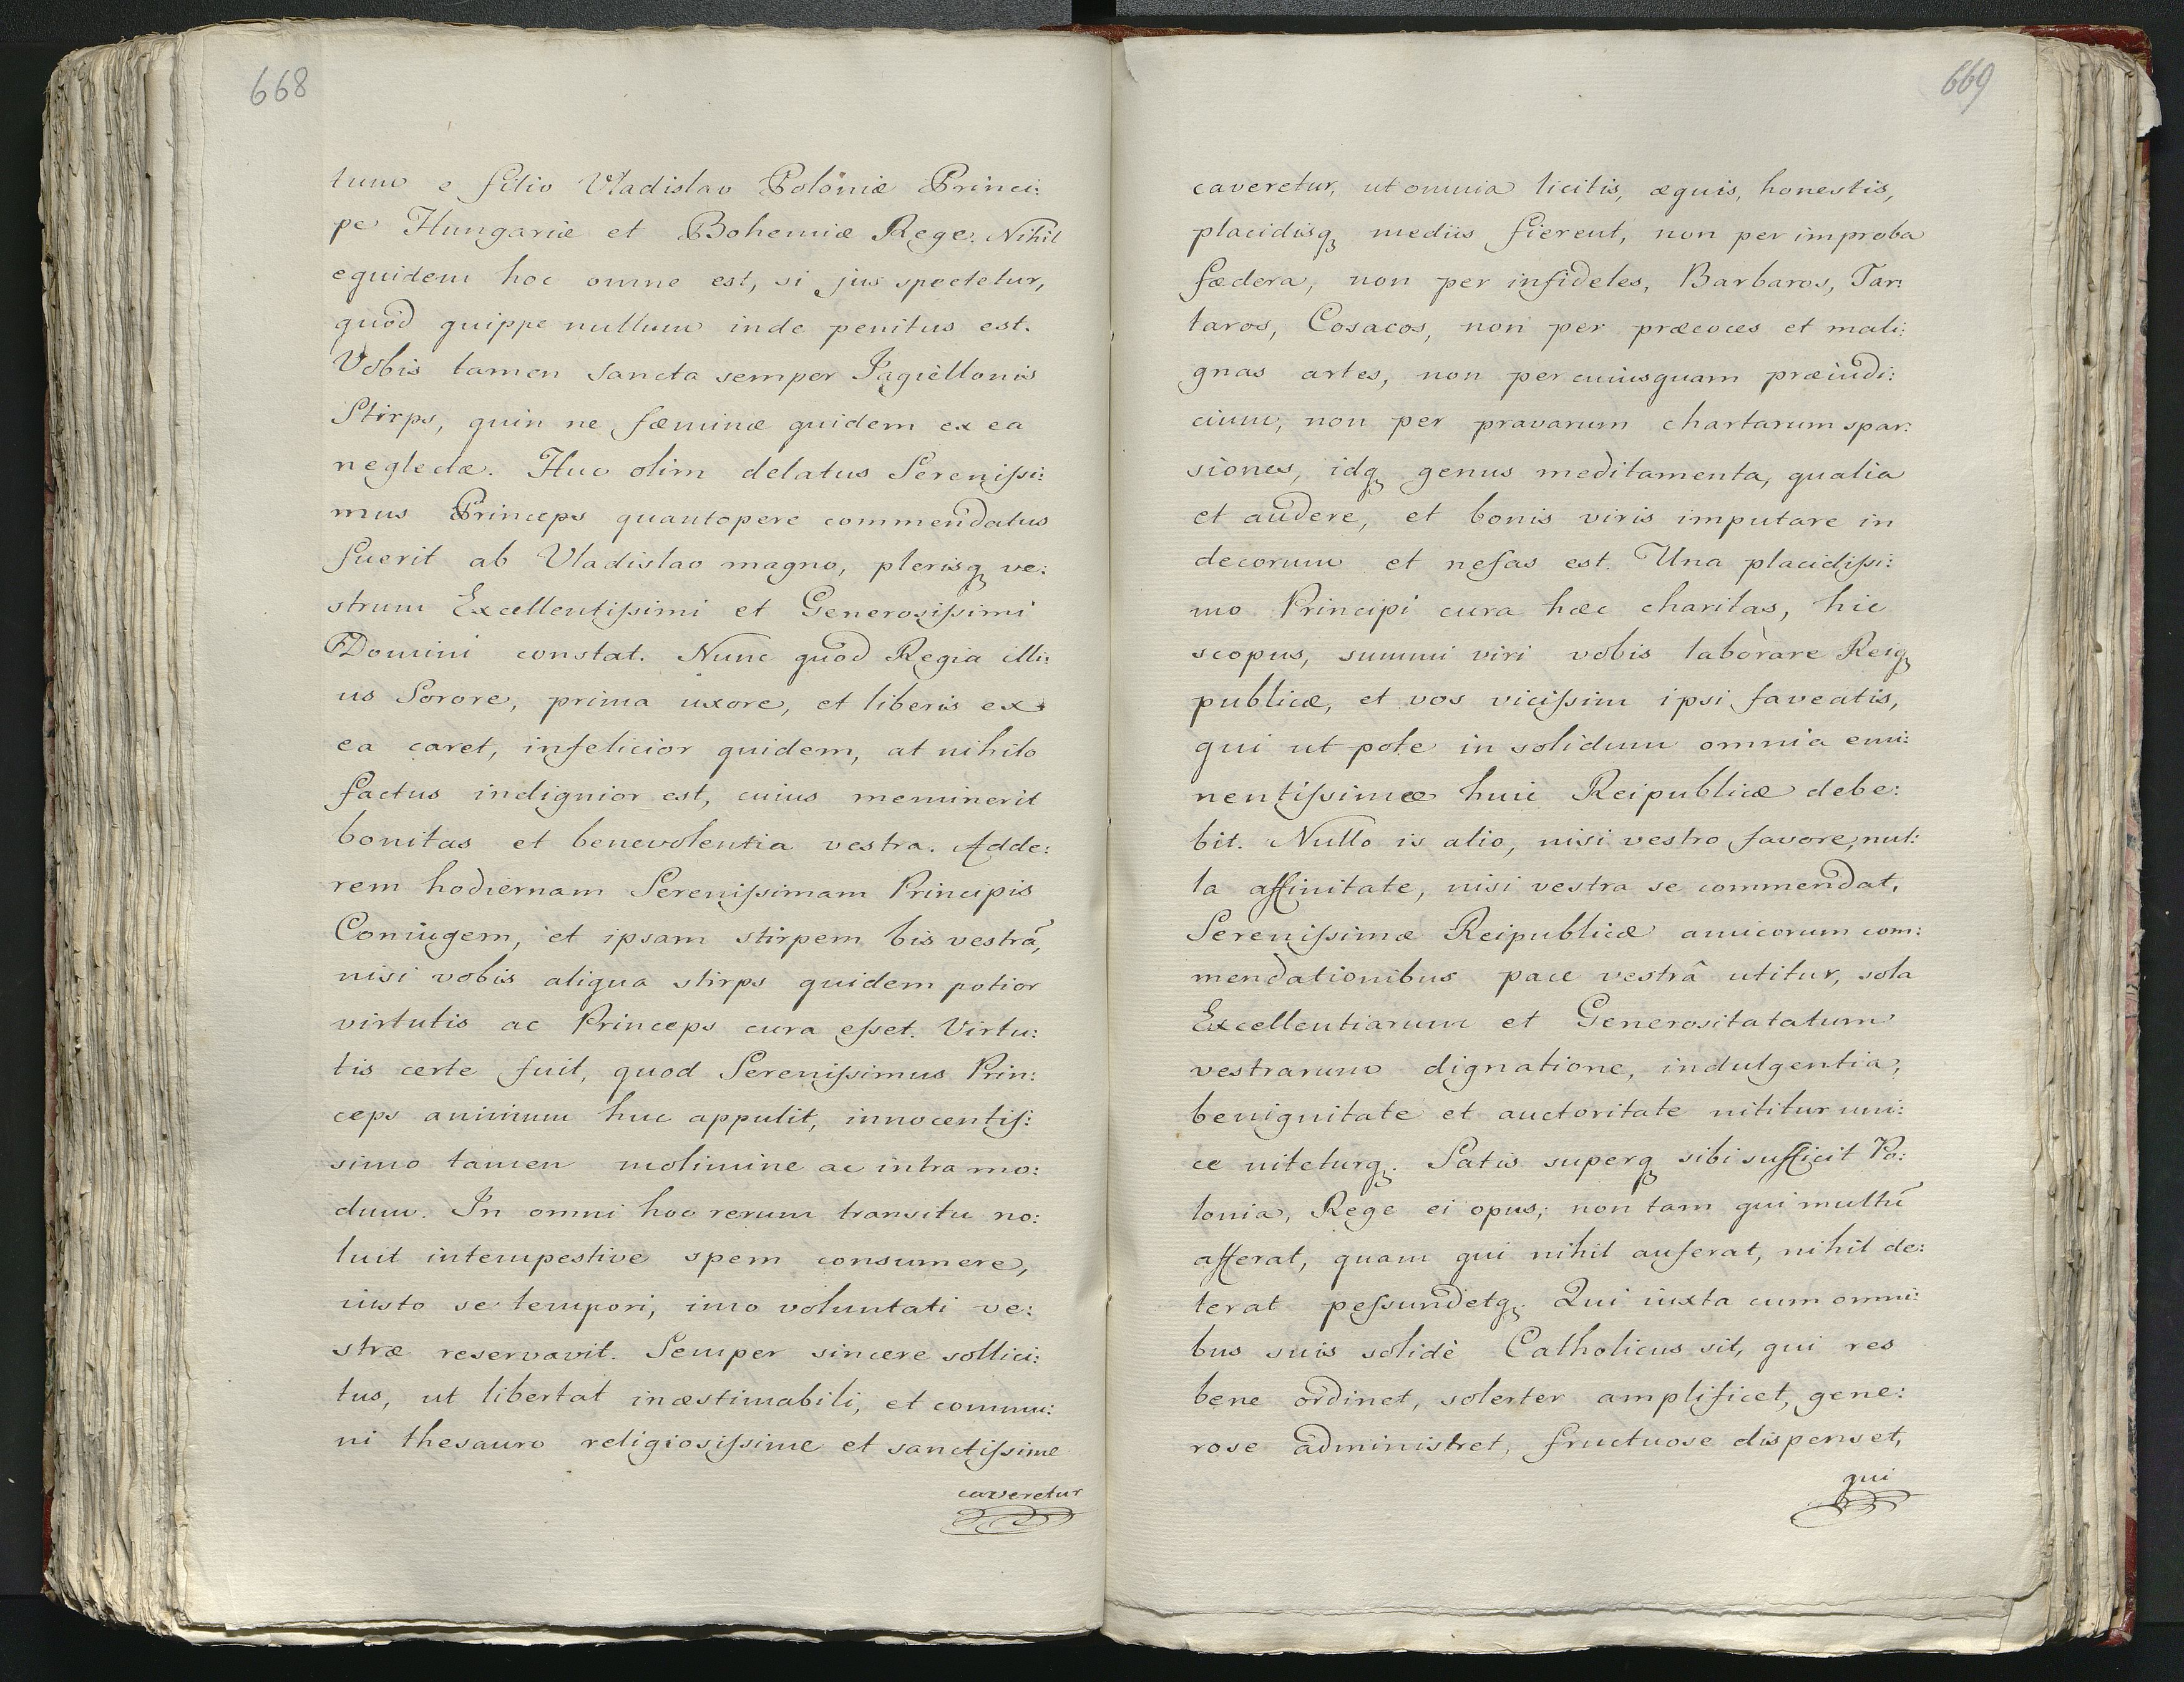 668
tum e filio Vladislao Poloniæ Princi:
pe Hungariæ et Bohemiæ Rege. Nihil
equidem hoc omne est, si jus spectetur,
quod quippe nullum inde penitus est.
Vobis tamen sancta semper Jagiellonis
Stirps, quin ne fæminæ quidem ex ea
neglectæ. Huc olim delatus Serenissi:
mus Princeps quantopere commendatus
fuerit ab Vladislao magno, plerisqꝫ ve:
strum Excellentissimi et Generosissimi
Domini constat. Nunc quod Regia illi:
us Sorore, prima uxore, et liberis ex
ea caret, infelicior quidem, at nihilo
factus indignior est, cuius meminerit
bonitas et benevolentia vestra. Adde:
rem hodiernam Serenissimam Principis
Coniugem, et ipsam stirpem bis vestrã,
nisi vobis aliqua stirps quidem potior
virtutis ac Princeps cura esset. Virtu:
tis certe fuit, quod Serenissimus Prin:
ceps animum huc appulit, innocentis:
simo tamen molimine ac intra mo:
dum. In omni hoc rerum transitu no:
luit intempestive spem consumere,
iusto se tempori, imo voluntati ve:
stræ reservavit. Semper sincere sollici:
tus, ut libertat inæstimabili, et commu:
ni thesauro religiosissime et sanctissime
caveretur
669
caveretur, ut omnia licitis, æquis, honestis,
placidisqꝫ mediis fierent, non per improba
fædera, non per infideles, Barbaros, Tar:
taros, Cosacos, non per præcoces et mali:
gnas artes, non per cuiusquam præiudi:
cium, non per pravarum chartarum spar:
siones, idqꝫ genus meditamenta, qualia
et audere, et bonis viris imputare in
decorum et nefas est. Una placidissi:
mo Principi cura hæc charitas, hic
scopus, summi viri vobis laboràre Reiqꝫ
publicæ, et vos vicissim ipsi faveatis,
qui ut pote in solidum omnia emi:
nentissimæ huic Reipublicæ debe:
bit. Nullo is alio, nisi vestro favore, nul:
la affinitate, nisi vestra se commendat,
Serenissimæ Reipublicæ amicorum com:
mendationibus pace vestrâ utitur, sola
Excellentiarum et Generositatatum
vestrarum dignatione, indulgentia,
benignitate et auctoritate nititur uni:
ce niteturqꝫ. Satis superqꝫ sibi sufficit Po:
lonia, Rege ei opus; non tam qui multũ
afferat, quam qui nihil auferat, nihil de:
terat pessundetqꝫ. Qui iuxta cum omni:
bus suis solidè Catholicus sit, qui res
bene ordinet, solerter amplificet, gene:
rose administret, fructuose dispenset,
qui